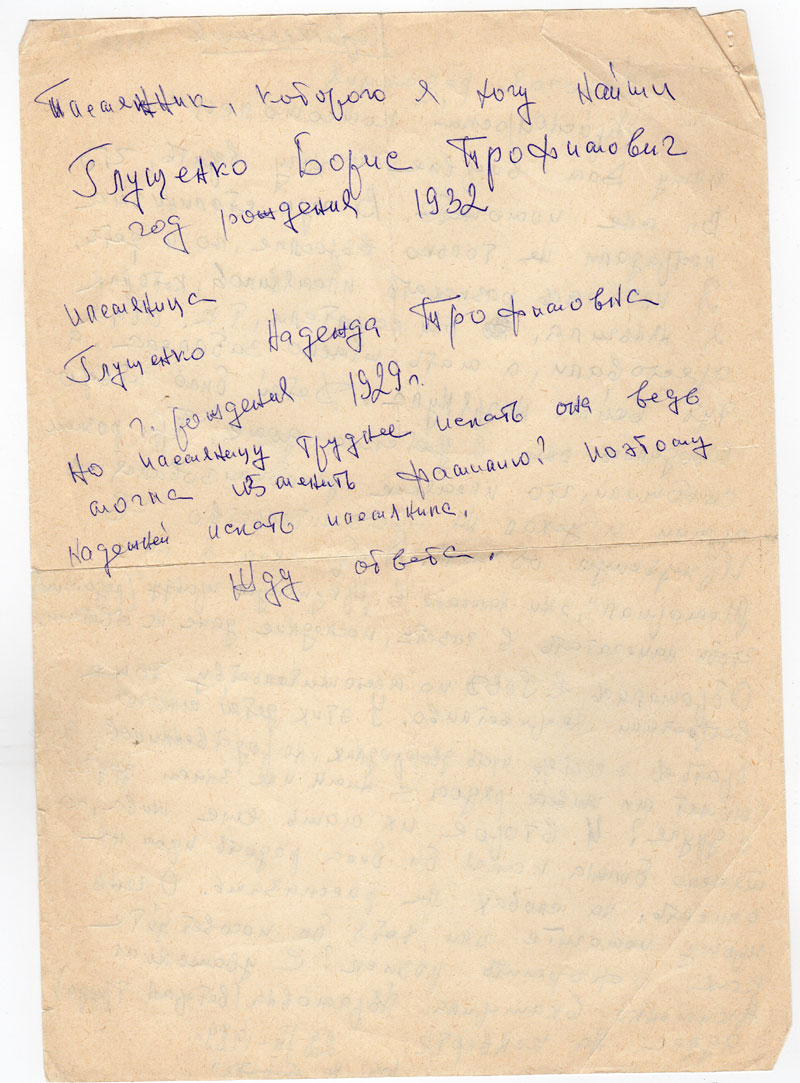 Племянник, которого я хочу найти
Глущенко Борис Трофимович
год рождения 1932
племяница
Глущенко Надежда Трофимовна
г. рождения 1929г.
Но племяницу труднее искать она ведь
могла изменить фамилию? поэтому
надежней искать племяника.
Жду ответа.